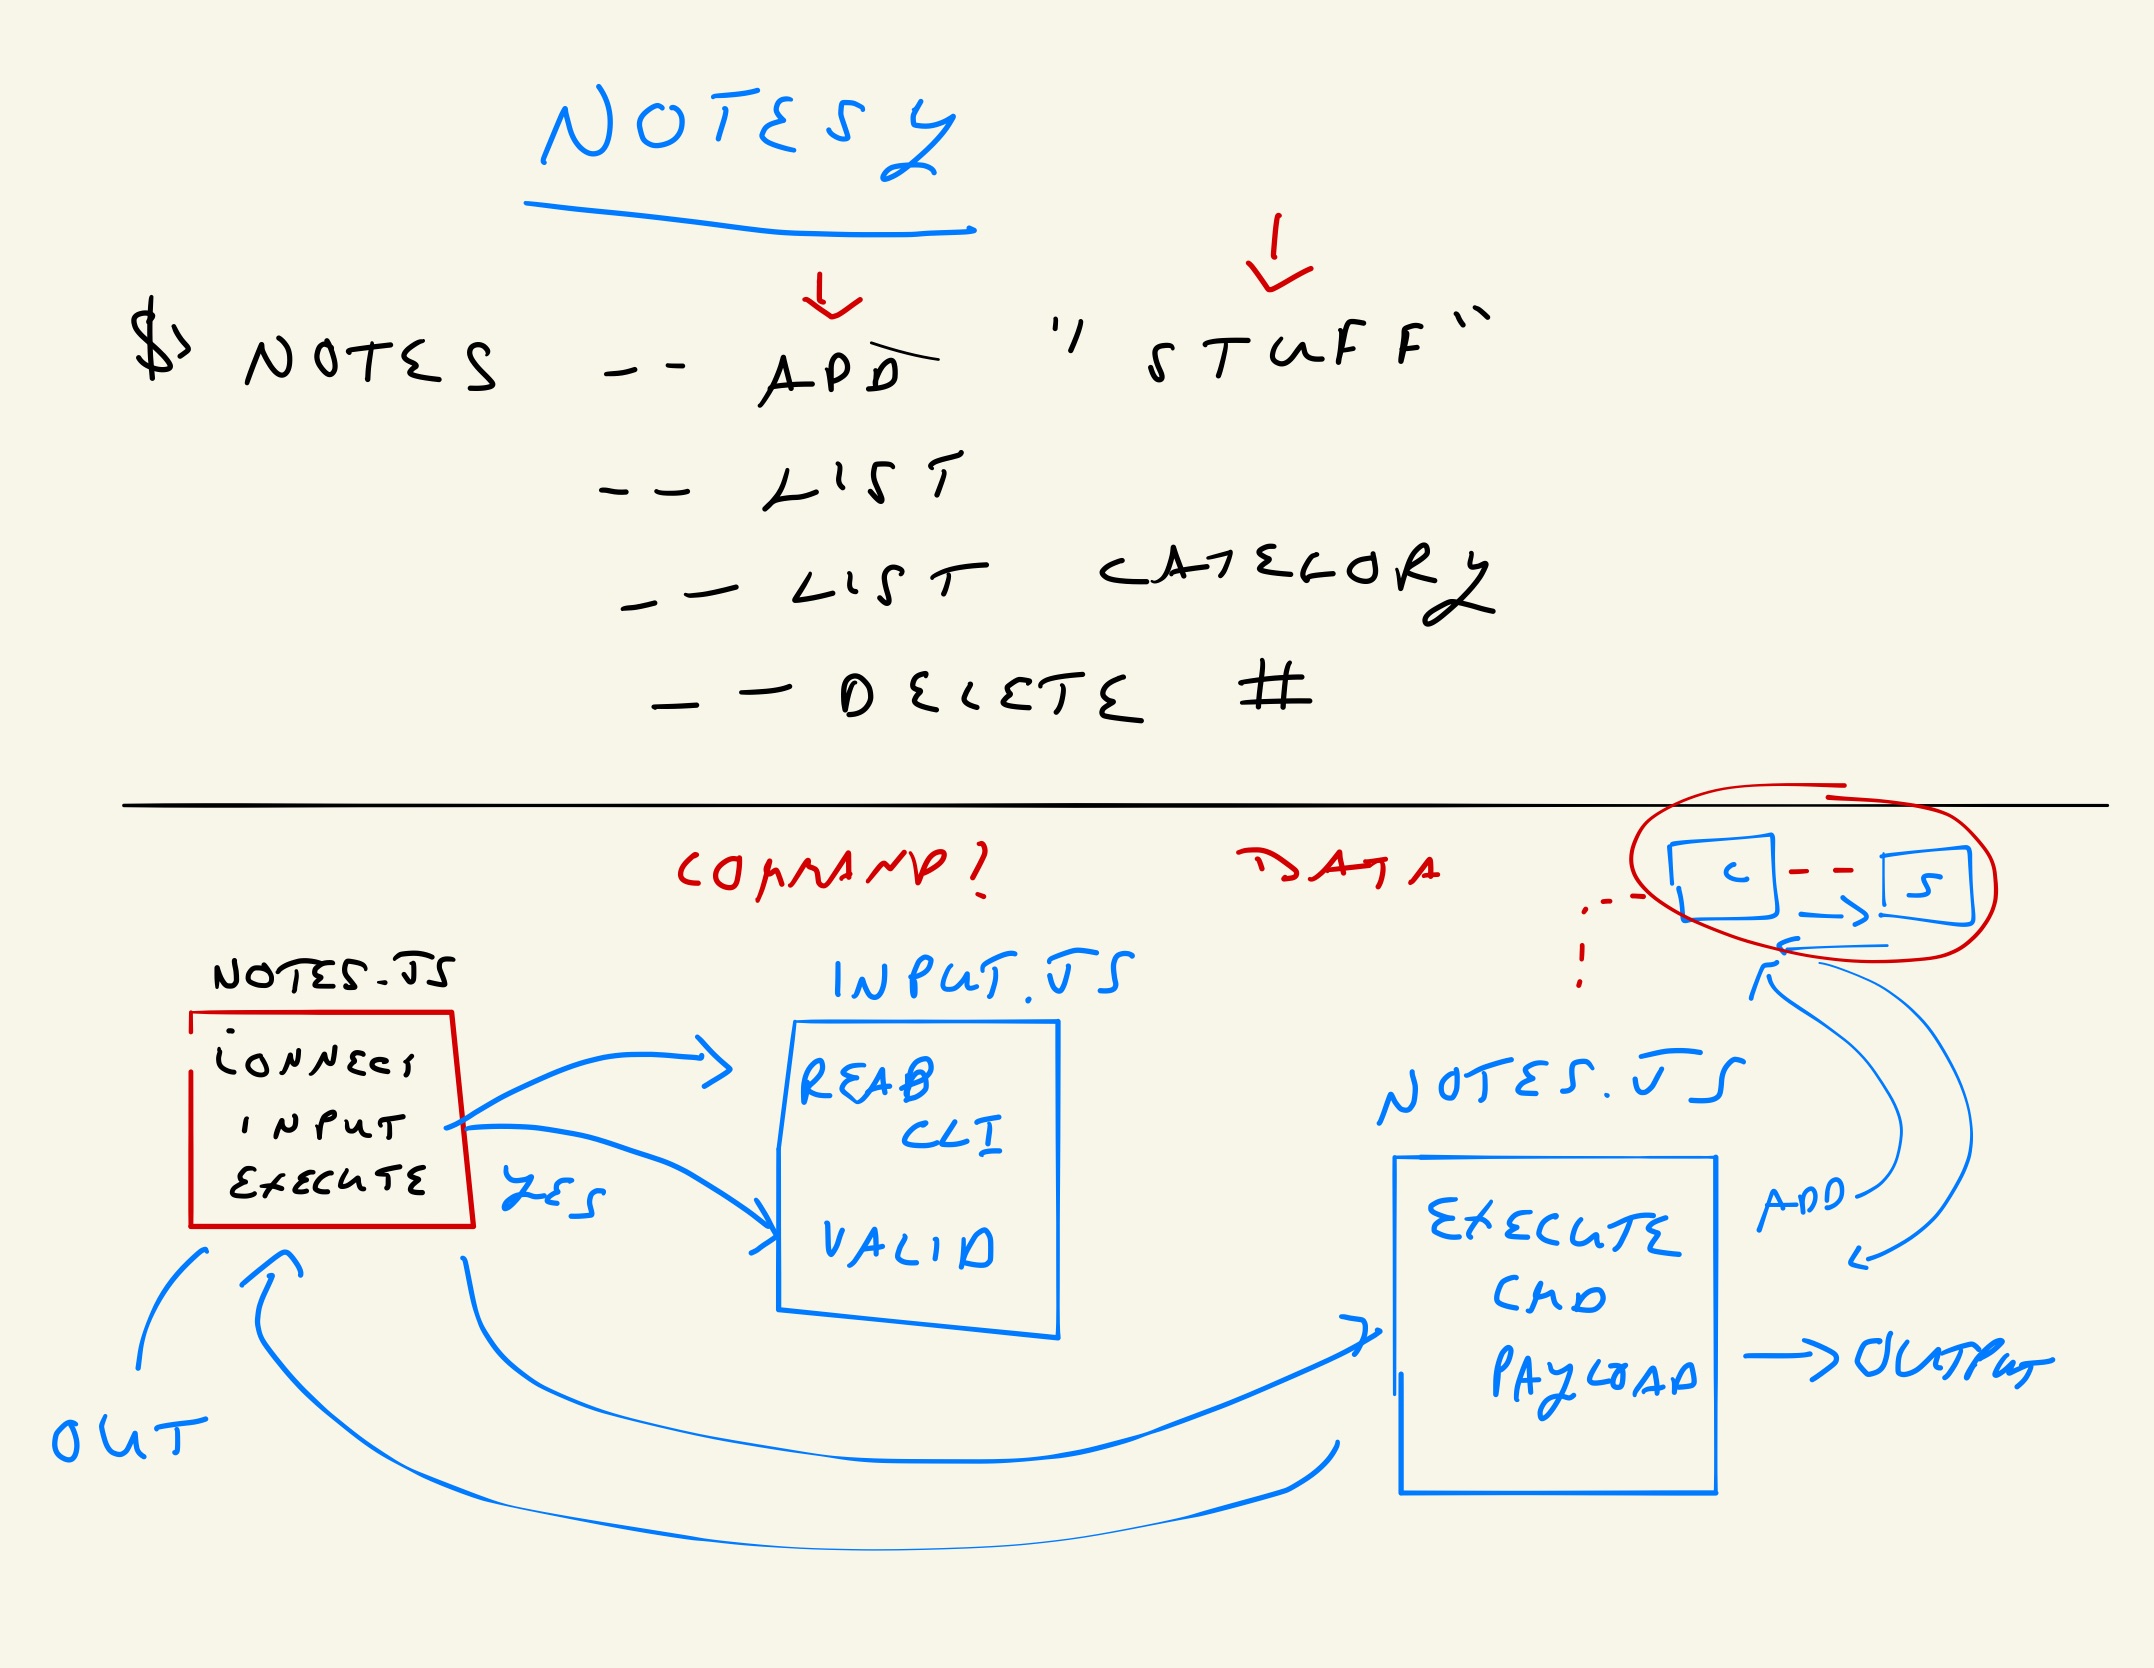 NOTESY
$ NOTES -- ADD " STUFF "
-- LIST
-- LIST CATEGORY
-- DELETE #
COMMAND? DATA
C -- S
NOTES.JS
CONNECT
INPUT
EXECUTE
YES
OUT
INPUT.JS
READ
CLI
VALID
NOTES.JS
EXECUTE
CMD
PAYLOAD
ADD
OUTPUT